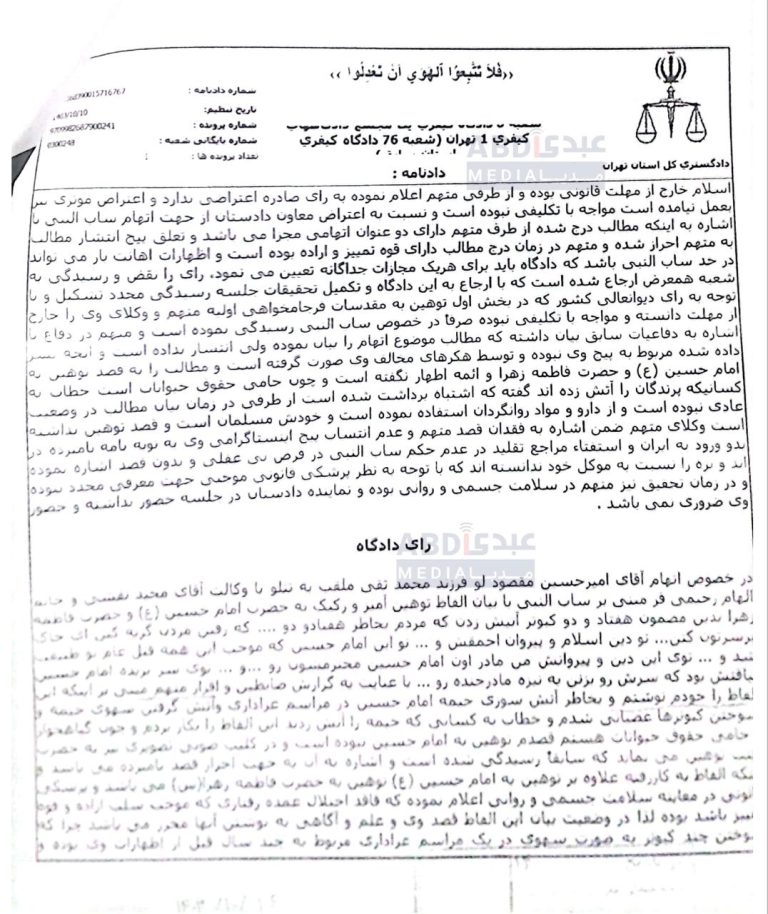 «فَلاَ تَتَّبِعُوا الْهَوَي اَنْ تَعْدِلُوا»
شماره دادنامه :
090015716767
تاریخ تنظیم:
شماره پرونده :
9709982687900241
شماره بایگانی شعبه :
0300248
تعداد پرونده ها :
کیفری 1 تهران (شعبه 76 دادگاه کیفری
دادگستری کل استان تهران
دادنامه :
عبدی
ABDI
MEDIA
اسلام خارج از مهلت قانونی بوده و از طرفی متهم اعلام نموده به رای صادره اعتراضی ندارد و اعتراض موثری نیز
بعمل نیامده است مواجه با تکلیفی نبوده است و نسبت به اعتراض معاون دادستان از جهت اتهام ساب النبی با
اشاره به اینکه مطالب درج شده از طرف متهم دارای دو عنوان اتهامی مجزا می باشد و تعلق پیج انتشار مطالب
به متهم احراز شده و متهم در زمان درج مطالب دارای قوه تمییز و اراده بوده است و اظهارات اهانت بار می تواند
در حد ساب النبی باشد که دادگاه باید برای هریک مجازات جداگانه تعیین می نمود، رای را نقض و رسیدگی به
شعبه همعرض ارجاع شده است که با ارجاع به این دادگاه و تکمیل تحقیقات جلسه رسیدگی مجدد تشکیل و با
توجه به رای دیوانعالی کشور که در بخش اول توهین به مقدسات فرجامخواهی اولیه متهم و وکلای وی را خارج
از مهلت دانسته و مواجه با تکلیفی نبوده صرفاً در خصوص ساب النبی رسیدگی نموده است و متهم در دفاع با
اشاره به دفاعیات سابق بیان داشته که مطالب موضوع اتهام را بیان نموده ولی انتشار نداده است و آنچه نشر
داده شده مربوط به پیج وی نبوده و توسط هکرهای مخالف وی صورت گرفته است و مطالب را به قصد توهین به
امام حسین (ع) و حضرت فاطمه زهرا و ائمه اظهار نگفته است و چون حامی حقوق حیوانات است خطاب به
کسانیکه پرندگان را آتش زده اند گفته که اشتباه برداشت شده است از طرفی در زمان بیان مطالب در وضعیت
عادی نبوده است و از دارو و مواد روانگردان استفاده نموده است و خودش مسلمان است و قصد توهین نداشته
است وکلای متهم ضمن اشاره به فقدان قصد متهم و عدم انتساب پیج اینستاگرامی وی به توبه نامه نامبرده در
بدو ورود به ایران و استفتاء مراجع تقلید در عدم حکم ساب النبی در فرض بی عقلی و بدون قصد اشاره نموده
اند و بزه را نسبت به موکل خود ندانسته اند که با توجه به نظر پزشکی قانونی موجبی جهت معرفی مجدد نبوده
و در زمان تحقیق نیز متهم در سلامت جسمی و روانی بوده و نماینده دادستان در جلسه حضور نداشته و حضور
وی ضروری نمی باشد .
عبدی
ABDI
MEDIA مدیا
رای دادگاه
در خصوص اتهام آقای امیرحسین مقصود لو فرزند محمد تقی ملقب به تتلو با وکالت آقای مجید نقشی و خانم
الهام رحیمی فر مبنی بر ساب النبی با بیان الفاظ توهین آمیز و رکیک به حضرت امام حسین (ع) و حضرت فاطمه
زهرا بدین مضمون هفتاد و دو کبوتر آتیش زدن که مردم بخاطر هفتادو دو .... که رفتن مردن گریه کنن ای خاک
برسرتون کنن... تو دین اسلام و پیروان احمقش و ... تو این امام حسین که موجب این همه قتل عام تو طبیعت
شد و ... توی این دین و پیروانش من مادر اون امام حسین محترمتون رو ...و ... توی سر بریده امام حسین
لیاقتش بود که سرش رو بزنن به نیزه مادرجنده رو ... با عنایت به گزارش ضابطین و اقرار متهم مبنی بر اینکه این
الفاظ را خودم نوشتم و بخاطر آتش سوزی خیمه امام حسین در مراسم عزاداری وآتش گرفتن سهوی خیمه و
سوختن کبوترها عصبانی شدم و خطاب به کسانی که خیمه را آتش زدند این الفاظ را بکار بردم و چون گیاهخوار
حامی حقوق حیوانات هستم قصدم توهین به امام حسین نبوده است و در کلیپ صوتی تصویری نیز به حضرت
توهین می نماید که سابقاً رسیدگی شده است و اشاره به آن به جهت احراز قصد نامبرده می باشد و
اینکه الفاظ به کاررفته علاوه بر توهین به امام حسین (ع) توهین به حضرت فاطمه زهرا(س) می باشد و پزشکی
قانونی در معاینه سلامت جسمی و روانی اعلام نموده که فاقد اختلال عمده رفتاری که موجب سلب اراده و قوه
تمییز باشد بوده لذا در وضعیت بیان این الفاظ قصد وی و علم و آگاهی به توهین آنها محرز می باشد چرا که
سوختن چند کبوتر به صورت سهوی در یک مراسم عزاداری مربوط به چند سال قبل از اظهارات وی بوده و